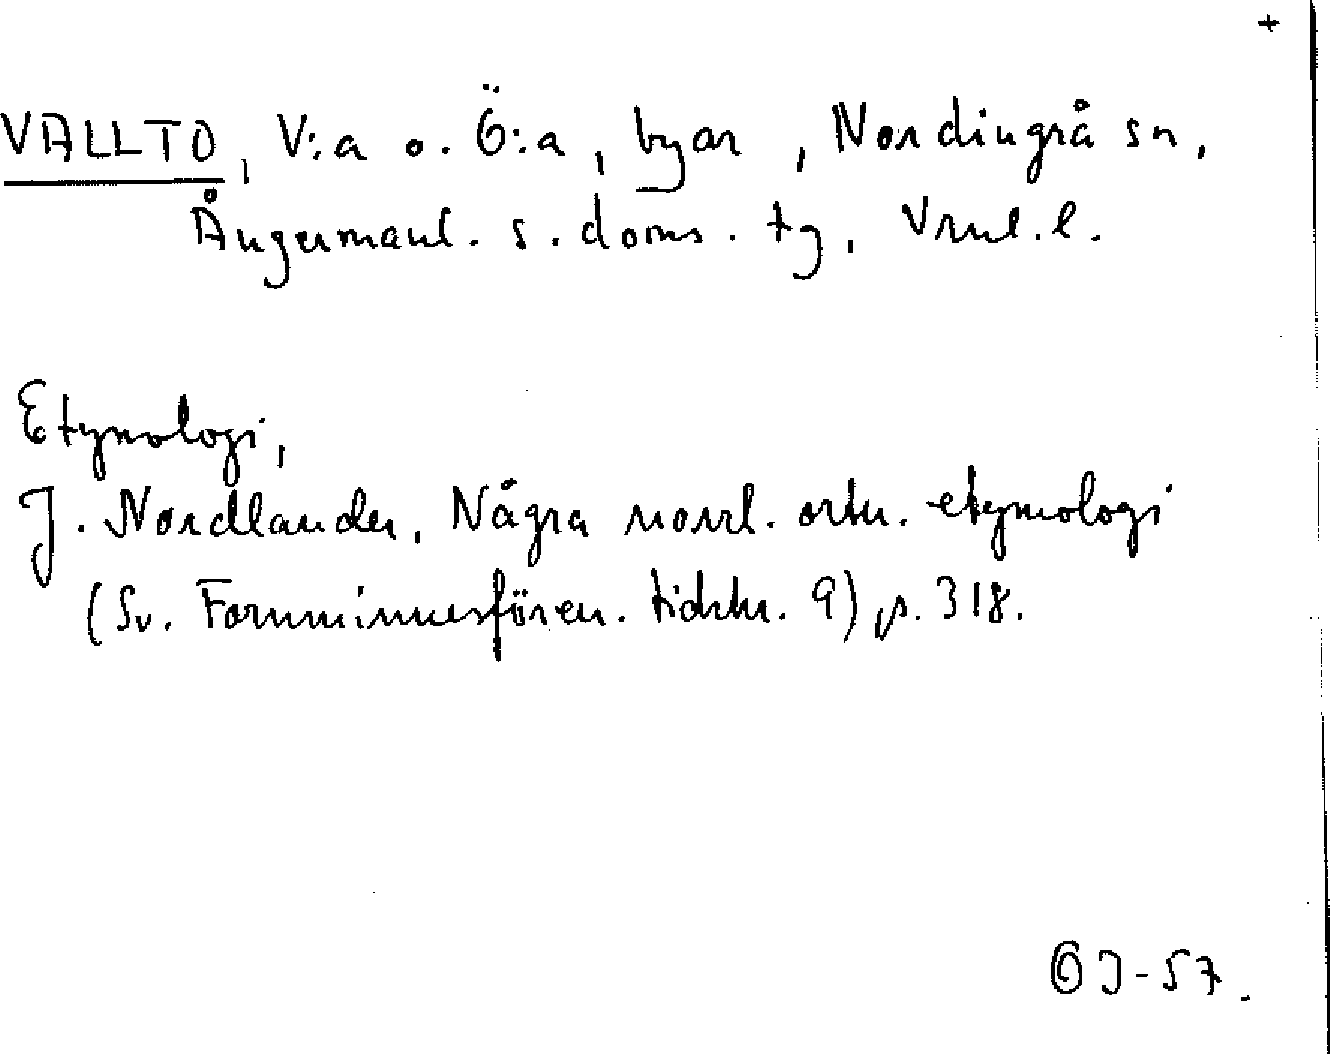 +
VALLTO, V:a o. Ö:a, byar, Nordingrå sn,
Ångermanl. s. doms. tg, Vrnl. l.
Etymologi,
J. Nordlander, Några norrl. ortn. etymologi
(Sv. Fornminnesfören. tidskr. 9) p. 318.
J-57.